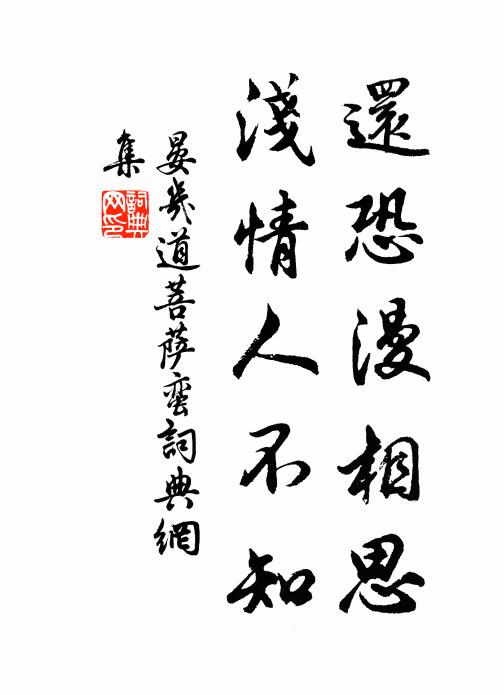 還恐漫相思
淺情人不知
晏幾道菩薩蠻詞典網
集
詞典
网印